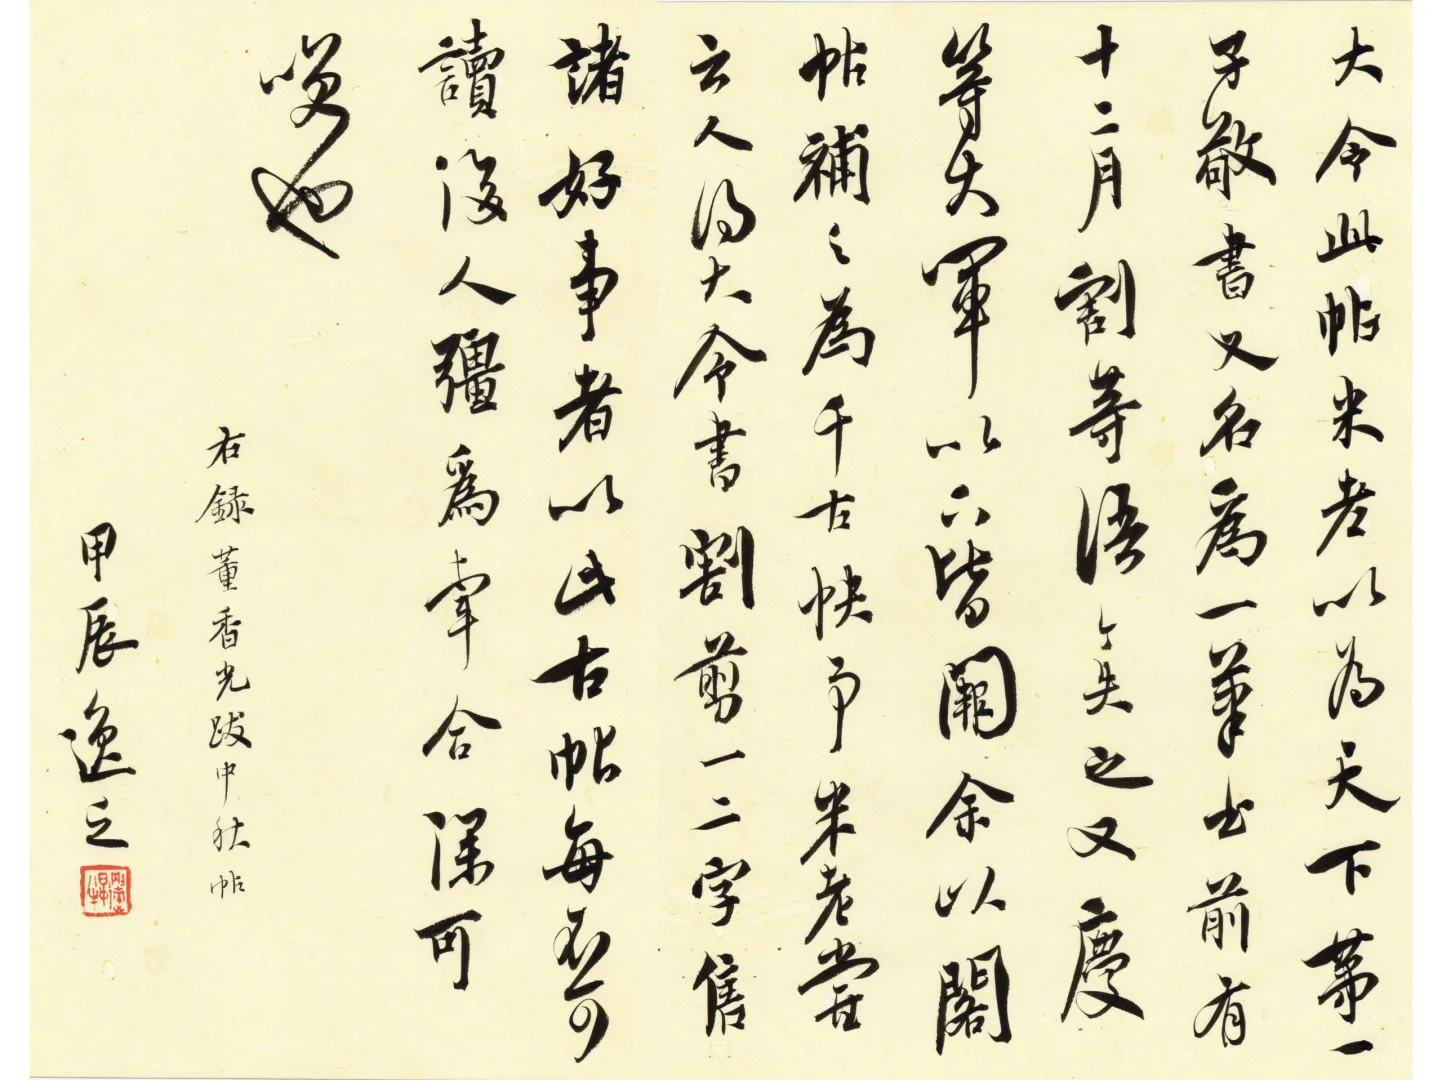 大令此帖米老以為天下第一
子敬書又名為一筆書前有
十二月割等語今失之又慶
等大軍以下皆闕余以閣
帖補之為千古快事米老嘗
云人得大令書割剪一二字售
諸好事者以此古帖每不可
讀後人彊為牽合深可
咲也
右録董香光跋中秋帖
甲辰逸之